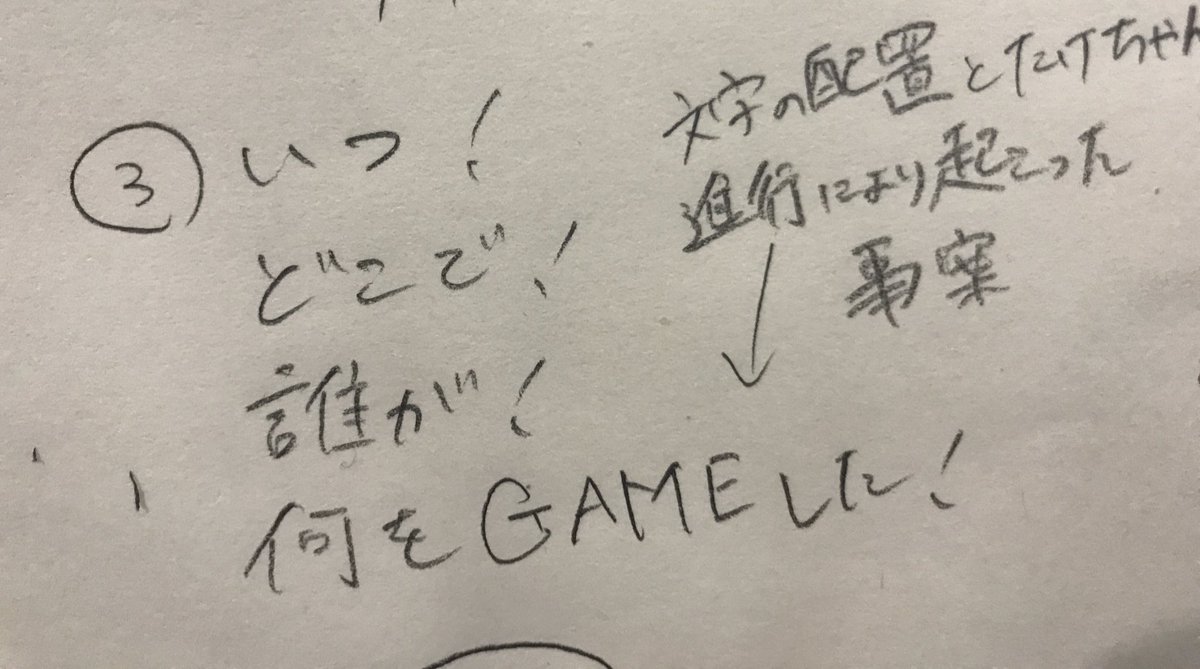 ③ いつ!
どこで!
誰が!
何をGAMEした!
文字の配置とたけちゃん
進行により起こった
事案